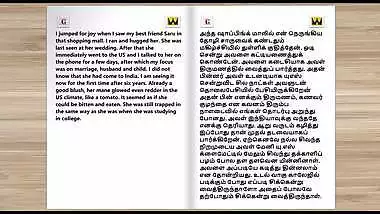 G
W
I jumped for joy when I saw my best friend Saru in
that shopping mall. I ran and hugged her. She was
last seen at her wedding. After that she
immediately went to the US and I talked to her on
the phone for a few days, after which my focus
was on marriage, husband and child. I did not
know that she had come to India. I am seeing it
now for the first time after six years. Already a
good blush, her mane glowed even redder in the
US climate, like a tomato. It seemed as if she
could be bitten and eaten. She was still trapped in
the same way as she was when she was studying
in college.
G
W
அந்த ஷாப்பிங் மாலில் என் நெருங்கிய
தோழி சாருவைக் கண்டதும்
மகிழ்ச்சியில் துள்ளிக் குதித்தேன். ஓடி
சென்று அவளை கட்டியணைத்துக்
கொண்டேன். அவளை கடைசியாக அவள்
திருமணத்தில் வைத்துப் பார்த்தது. அதன்
பின்னர் அவள் உடனடியாக யுஎஸ்
சென்றுவிட சில நாட்கள் அவளுடன்
தொலைபேசியில் பேசியிருக்கிறேன்
அதன் பின் எனக்கும் திருமணம், கணவர்
குழந்தை என கவனம் திரும்ப
நாளடைவில் எங்கள் தொடர்பு அறுந்து
போனது. அவள் இந்தியாவுக்கு வந்ததே
எனக்கு தெரியாது. ஆறு வருடம் கழித்து
இப்போது தான் முதல் தடவையாகப்
பார்க்கிறேன். ஏற்கெனவே நல்ல சிவந்த
நிறமுடைய அவள் மேனி யு எஸ்